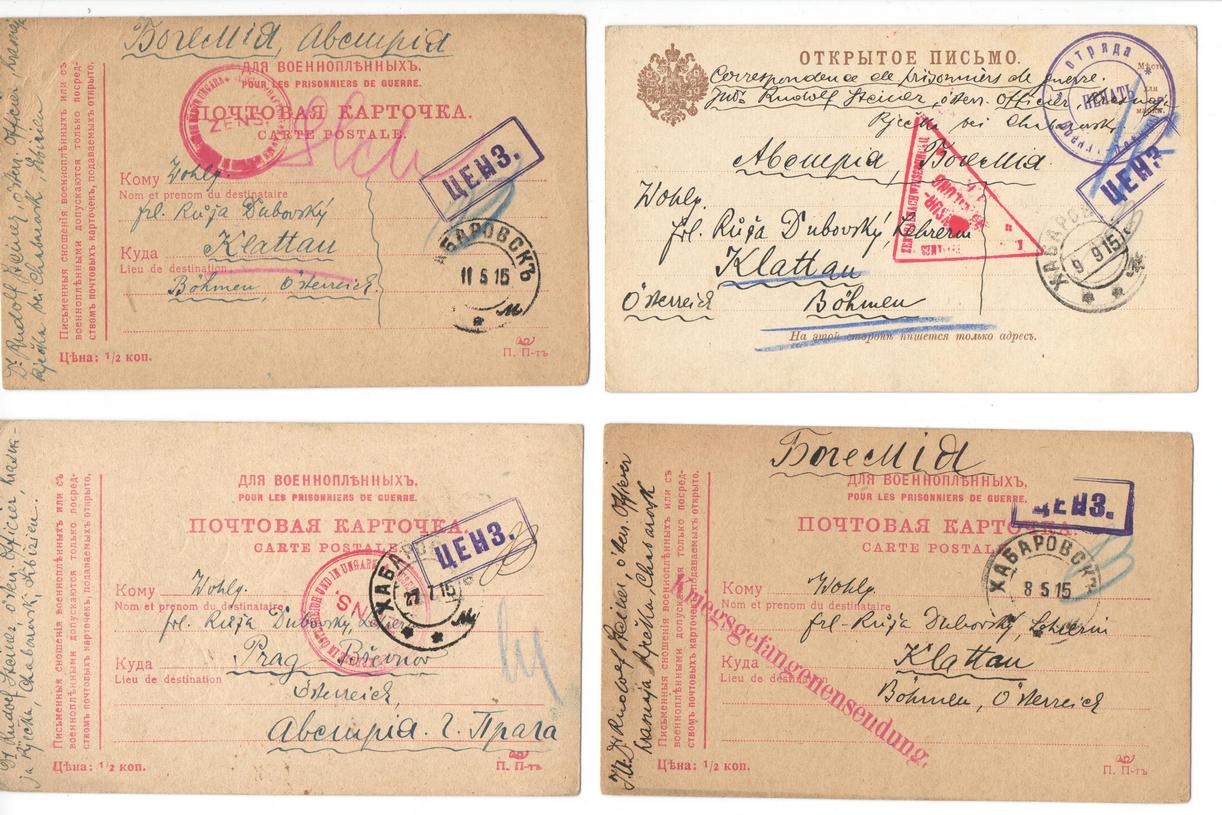 Богемія, Австрія
ДЛЯ ВОЕННОПЛѢННЫХЪ.
POUR LES PRISONNIERS DE GUERRE.
ПОЧТОВАЯ КАРТОЧКА.
CARTE POSTALE.
ZENS
ЦЕНЗ.
Кому Wohlg.
Nom et prenom du destinataire
frl. Růža Dubovský
Куда Klattau
Lieu de destination
Böhmen, Österreich.
ХАБАРОВСКЪ
11 5 15
Письменныя сношенія военноплѣнными или съ
военноплѣнными допускаются только посред-
ствомъ почтовыхъ карточекъ, подаваемыхъ открыто.
Dr Rudolf Steiner, österr. Officier,
Rječka bei Chabarovsk, Sibirien
Цѣна: 1/2 коп.
П. П-тъ
ОТКРЫТОЕ ПИСЬМО.
Correspondence de prisonniers de guerre.
Rudolf Steiner, österr. Officier,
Rječka bei Chabarovsk
отряда
ПЕЧАТЬ
Австрія, Богемія
ЦЕНЗ
Wohlg.
frl. Růža Dubovský Lehrerin
Klattau
Österreich Böhmen
ХАБАРОВСКЪ
9 9 15
На этой сторонѣ пишется только адресъ.
ДЛЯ ВОЕННОПЛѢННЫХЪ.
POUR LES PRISONNIERS DE GUERRE.
ПОЧТОВАЯ КАРТОЧКА.
CARTE POSTALE
ЦЕНЗ.
ХАБАРОВСКЪ
27 7 15
Кому Wohlg.
Nom et prenom du destinataire
frl. Růža Dubovský, Lehrerin
Куда Prag - Břevnov
Lieu de destination
Österreich
Австрія. г. Прага
Письменныя сношенія военноплѣнными или съ
военноплѣнными допускаются только посред-
ствомъ почтовыхъ карточекъ, подаваемыхъ открыто.
Dr Rudolf Steiner österr. Officier,
Rječka, Chabarovsk, Sibirien.
Цѣна: 1/2 коп.
П. П-тъ
Богемія
ДЛЯ ВОЕННОПЛѢННЫХЪ.
POUR LES PRISONNIERS DE GUERRE.
ПОЧТОВАЯ КАРТОЧКА
CARTE POSTALE.
ЦЕНЗ.
ХАБАРОВСКЪ
8 5 15
Кому Wohlg.
Nom et prenom du destinataire
frl. Růža Dubovský, Lehrerin
Куда Klattau
Lieu de destination
Böhmen, Österreich
Kriegsgefangenensendung.
Письменныя сношенія военноплѣнными или съ
военноплѣнными допускаются только посред-
ствомъ почтовыхъ карточекъ, подаваемыхъ открыто.
Dr Rudolf Steiner, österr. Officier
Rječka Chabarovsk
Цѣна: 1/2 коп.
П. П-тъ